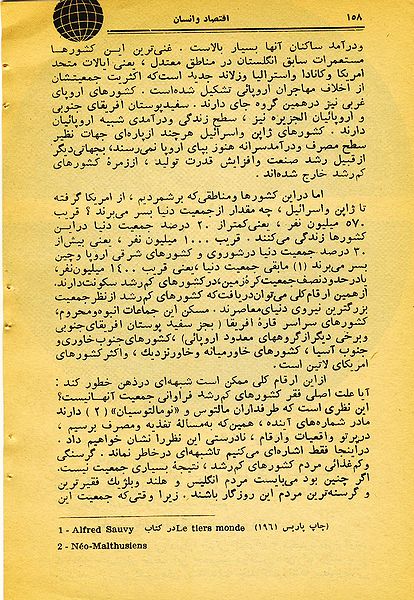 ۱۵۸ اقتصاد و انسان
ودرآمد ساکنان آنها بسیار بالاست . غنی‌ترین این کشورها
مستعمرات سابق انگلستان در مناطق معتدل ، یعنی ایالات متحد
امریکا وکانادا واسترالیا وزلاند جدید است‌که اکثریت جمعیتشان
از اخلاف مهاجران اروپائی تشکیل شده‌است . کشورهای اروپای
غربی نیز درهمین گروه جای دارند . سفیدپوستان آفریقای جنوبی
و اروپائیان الجزیره نیز ، سطح زندگی ودرآمدی شبیه اروپائیان
دارند . کشورهای ژاپن واسرائیل هرچند ازپاره‌ای جهات نظیر
سطح مصرف ودرآمدسرانه هنوز بپای اروپا نمی‌رسند، بجهاتی‌دیگر
ازقبیل رشد صنعت وافزایش قدرت تولید ، اززمرهٔ کشورهای
کم‌رشد خارج شده‌اند .
اما دراین کشورها ومناطقی‌که برشمردیم ، از امریکا گرفته
تا ژاپن واسرائیل ، چه مقدار ازجمعیت دنیا بسر می‌برند ؟ قریب
۵۷۰ میلیون نفر ، یعنی‌کمتراز ۲۰ درصد جمعیت دنیا دراین
کشورها زندگی می‌کنند . قریب ۱۰۰۰ میلیون نفر ، یعنی بیش‌از
۳۰ درصد جمعیت دنیا درشوروی و کشورهای شرقی اروپا وچین
بسر می‌برند (۱) مابقی جمعیت دنیا ،یعنی قریب ۱۴۰۰ میلیون‌نفر،
یادرحدودنصف‌جمعیت‌کرهٔ‌زمین،درکشورهای کم‌رشد سکونت‌دارند.
ازهمین ارقام‌کلی می‌توان‌دریافت‌که کشورهای کم‌رشد ازنظرجمعیت
بزرگترین نیروی دنیای‌معاصرند. مسکن این جماعات انبوه‌ومحروم،
کشورهای سراسر قارهٔ افریقا ( بجز سفید پوستان افریقای‌جنوبی
وبرخی دیگرازگروههای معدود اروپائی) ،کشورهای‌جنوب‌خاوری‌و
جنوب آسیا ، کشورهای خاورمیانه وخاورنزدیك ، واکثرکشورهای
امریکای لاتین است .
ازاین ارقام کلی ممکن است شبهه‌ای درذهن خطور کند :
آیا علت اصلی فقر کشورهای کم‌رشد فراوانی جمعیت آنهانیست؟
این نظری است که طرفداران مالتوس و «نومالتوسیان» ( ۲ ) دارند
مادر شماره‌های آینده ، همین‌که به‌مسالهٔ تغذیه ومصرف برسیم ،
درپرتو واقعیات وارقام ، نادرستی این نظررا نشان خواهیم داد .
دراینجا فقط اشاره‌ای می‌کنیم تاشبهه‌ای درخاطر نماند . گرسنگی
وکم‌غذائی مردم کشورهای کم‌رشد ، نتیجهٔ بسیاری جمعیت نیست.
اگر چنین بود می‌بایست مردم انگلیس و هلند وبلژیك فقیرترین
و گرسنه‌ترین مردم این روزگار باشند . زیرا وقتی‌که جمعیت این
1 - Alfred Sauvy در کتاب Le tiers monde (چاپ پاریس ۱۹۶۱)
2 - Néo-Malthusiens